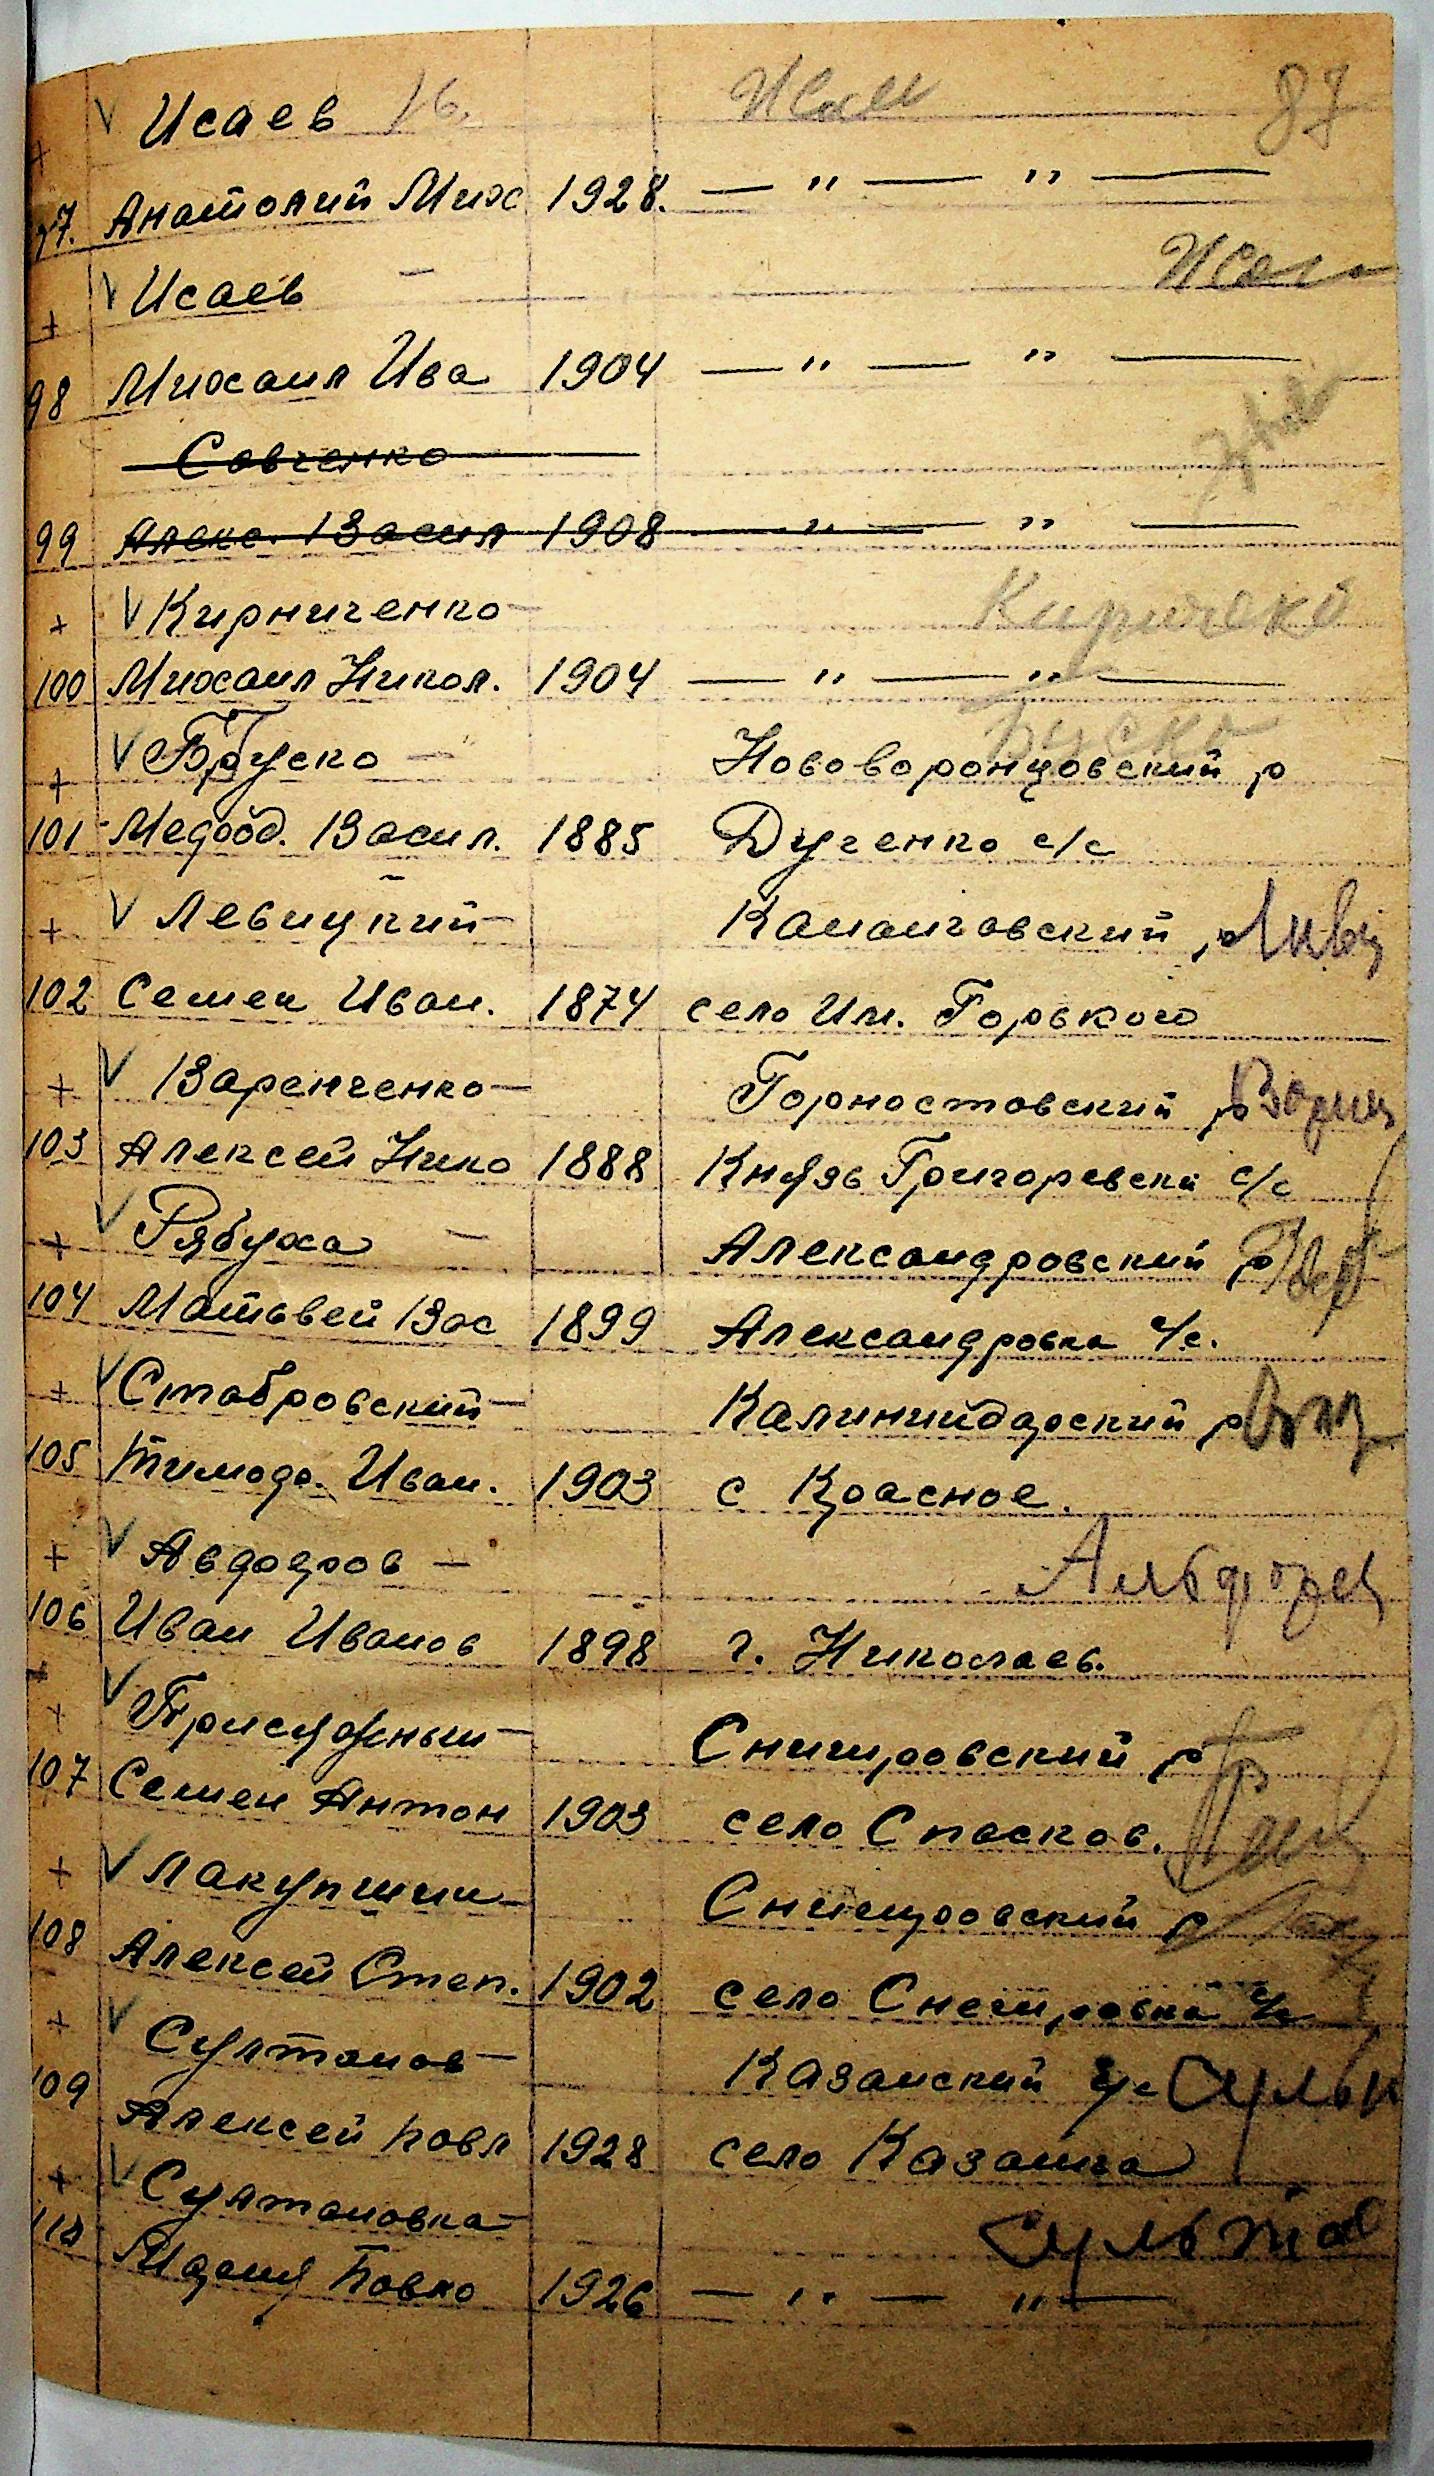 V Исаев Исаи 87
+
97. Анатолий Мих 1928. — " — " —
V Исаев —
+
98 Михаил Ива 1904 — " — " —
Савченко
99 Алекс. Васил 1908 — " — " —
+ V Кирниченко — Кириченко
100 Михаил Никол. 1904 — " — " —
+ V Буско — Нововоронцовский р
101 Мефод. Васил. 1885 Дудченко с/с
+ V Левицкий — Каланчавский р
102 Семен Иван. 1874 село Им. Горького
+ V Варенченко — Горностовский р
103 Алексей Нико 1888 Князь Григоревски с/с
+ V Рябуха — Александровский р
104 Матьвей Вас 1899 Александровка с/с.
+ V Стабровский — Калининдарский р
105 Тимофе. Иван. 1903 с Красное.
+ V Авдофров —
106 Иван Иванов 1898 г. Николаев.
+ V Присужный — Снигировский р
107 Семен Антон 1903 село Спасков.
+ V Лакупшин — Снигировский р
108 Алексей Степ. 1902 село Снегировка с/с
+ V Султанов — Казанский
109 Алексей Павл 1928 село Казанка
+ V Султановка — Сульта
110 Мария Павло 1926 — " — " —